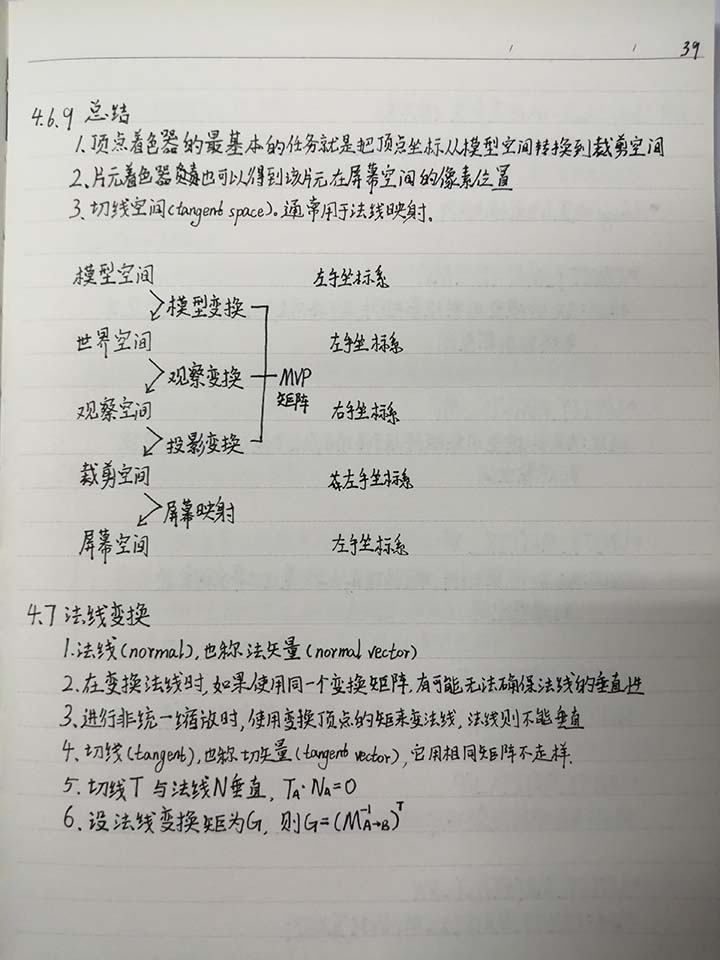 39
4.6.9 总结
1.顶点着色器的最基本的任务就是把顶点坐标从模型空间转换到裁剪空间
2、片元着色器也可以得到该片元在屏幕空间的像素位置
3.切线空间(tangent space)。通常用于法线映射.
模型空间 左手坐标系
模型变换
世界空间 左手坐标系
观察变换 MVP
矩阵
观察空间 右手坐标系
投影变换
裁剪空间 左手坐标系
屏幕映射
屏幕空间 左手坐标系
4.7 法线变换
1.法线(normal),也称法矢量(normal vector)
2.在变换法线时,如果使用同一个变换矩阵,有可能无法确保法线的垂直性
3、进行非统一缩放时,使用变换顶点的矩来变法线,法线则不能垂直
4.切线(tangent),也称切矢量(tangent vector),它用相同矩阵不走样.
5.切线T与法线N垂直, T_A·N_A=0
6、设法线变换矩为G, 则G=(M_{A→B}^{-1})^T